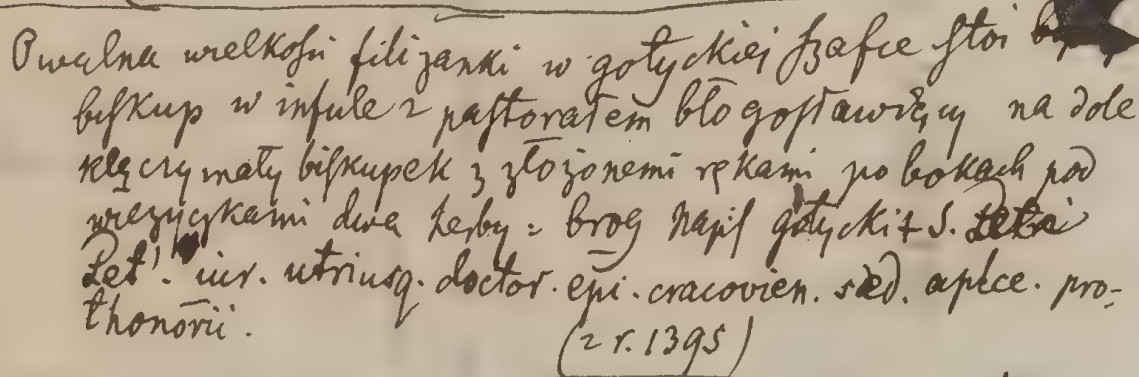 Owalna wielkości filiżanki w gotyckiej szafce stoi
biskup w infule z pastorałem błogosławiący na dole
klęczy mały biskupek z złożonemi rękami po bokach pod
wieżyczkami dwa herby = brog napis gotycki + S. Petri
Pet. iur. utriusq. doctor. epi. cracovien. sed. aplce. pro-
thonorii.
(z r. 1395)